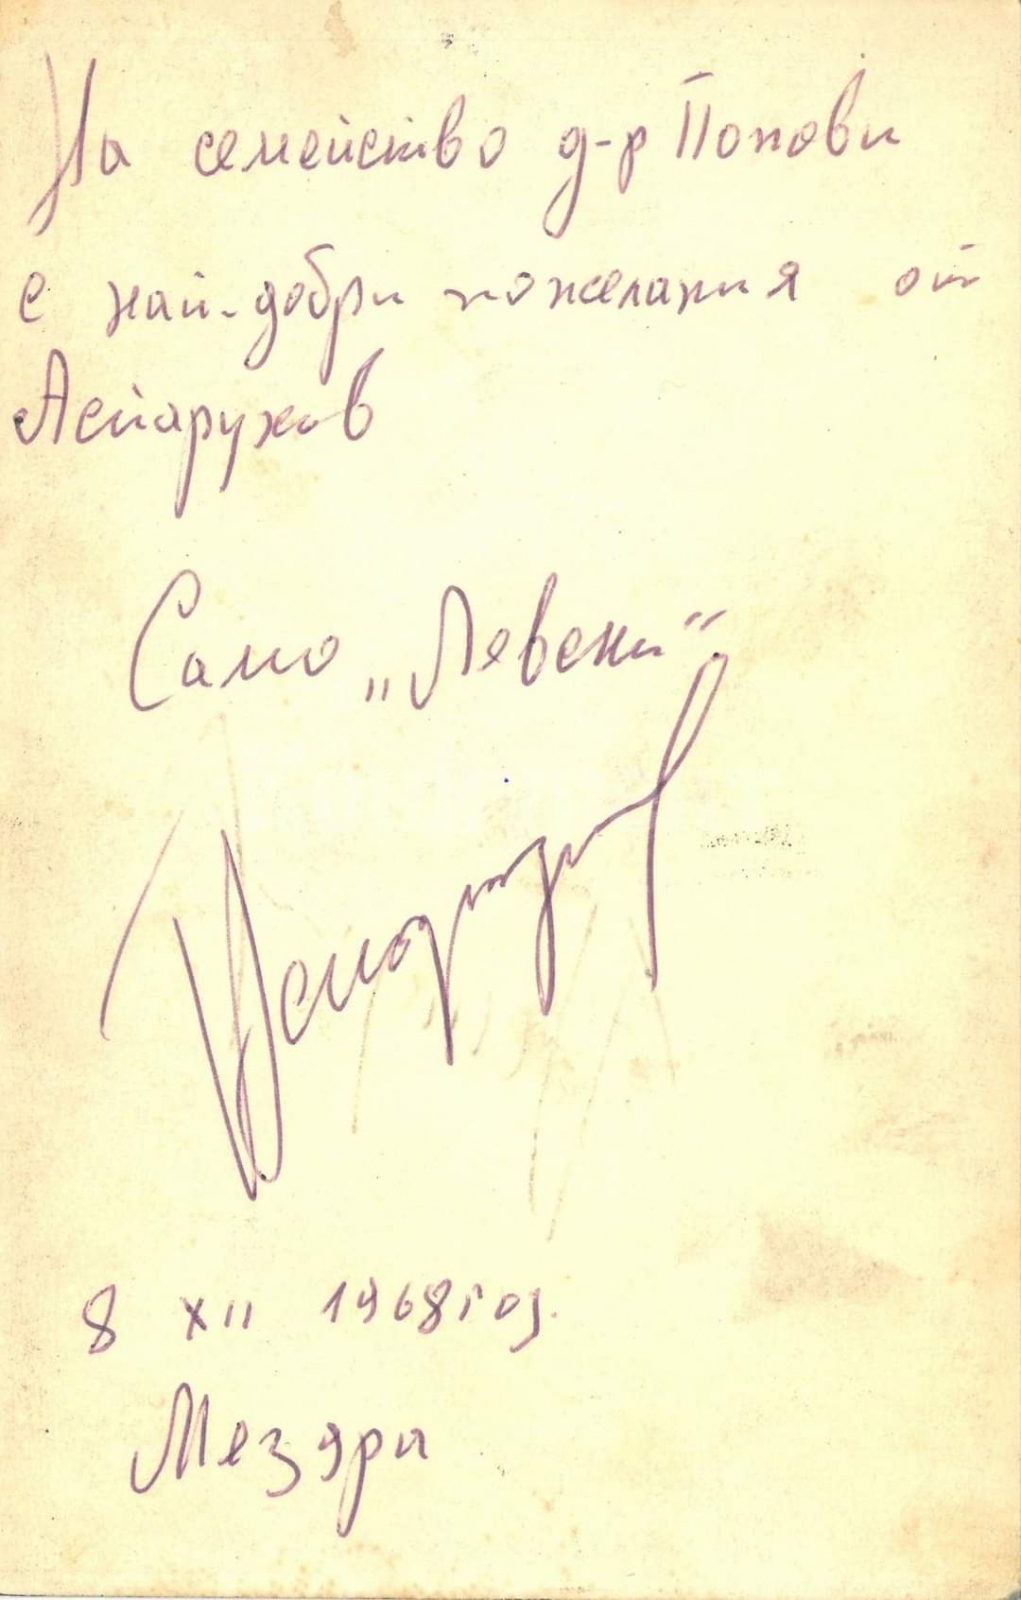 На семейство д-р Попови
с най-добри пожелания от
Аспарухов
Само „Левски”
8 XII 1968 год.
Мездра